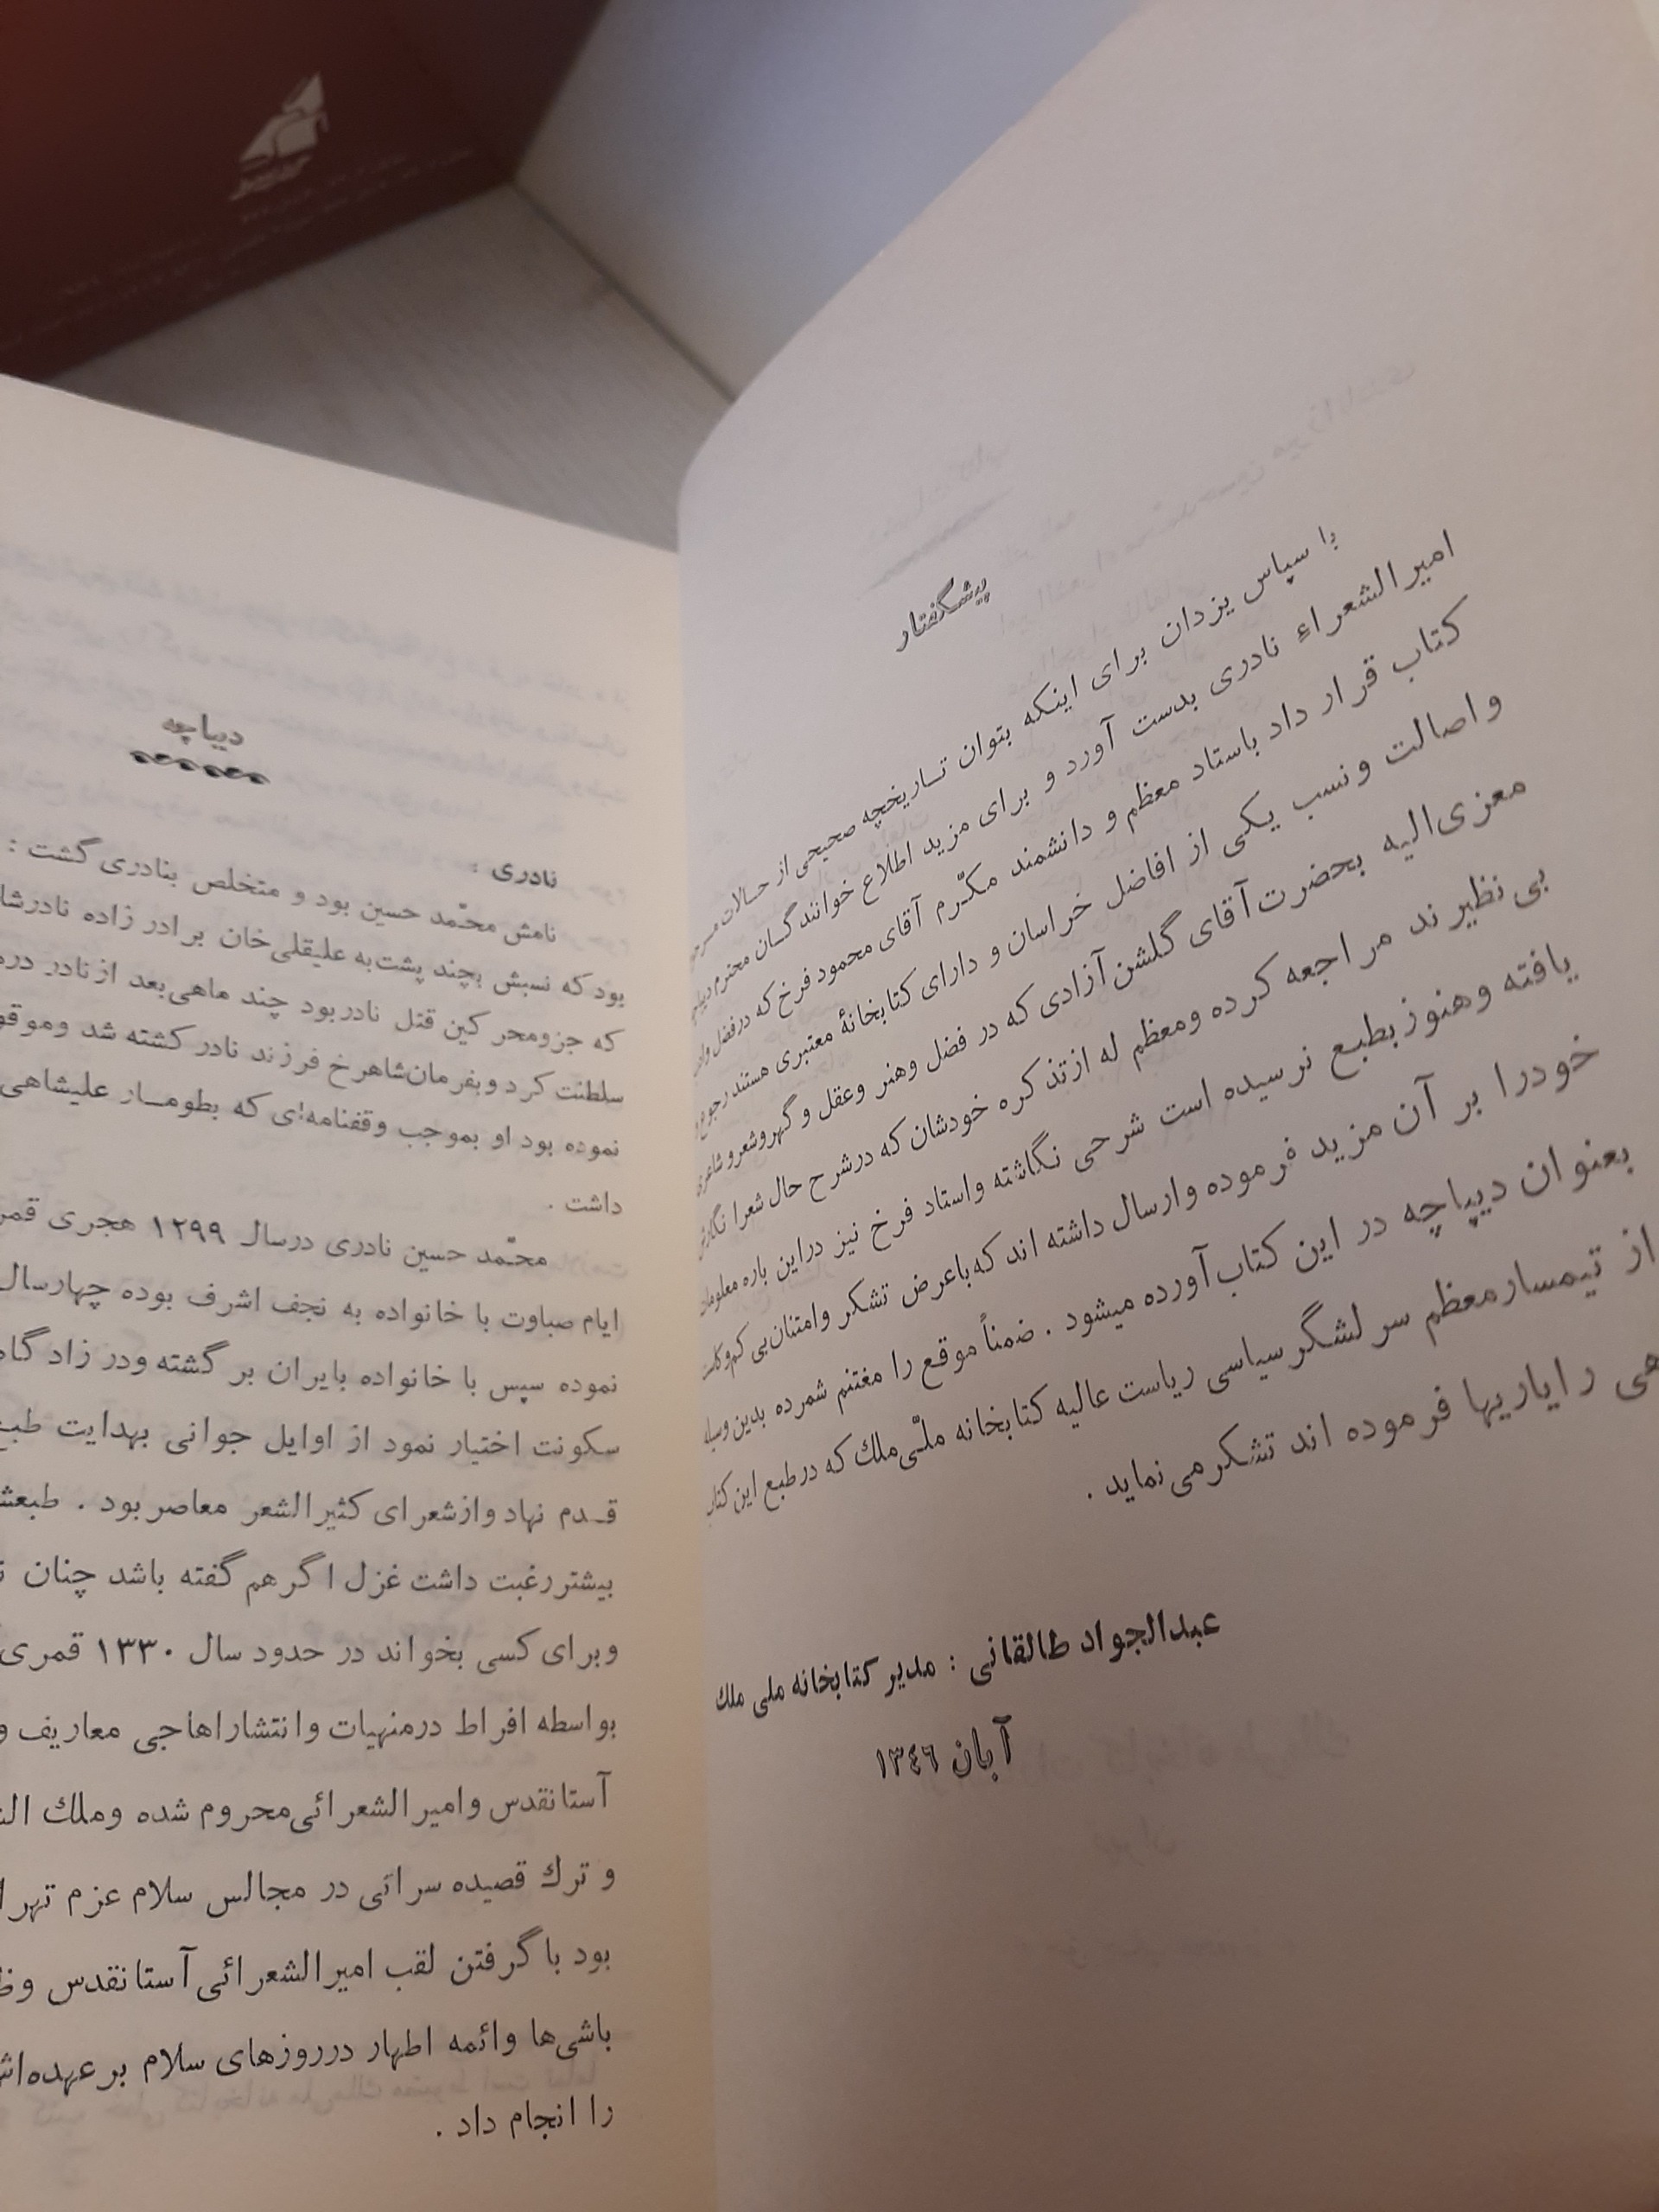 پیشگفتار
با سپاس یزدان برای اینکه بتوان تاریخچه صحیحی از حالات
امیرالشعراء نادری بدست آورد و برای مزید اطلاع خوانندگان محترم
کتاب قرار داد باستاد معظم و دانشمند مکرّم آقای محمود فرخ که درفضل
واصالت ونسب یکی از افاضل خراسان و دارای کتابخانهٔ معتبری هستند رجوع
معزی‌الیه بحضرت آقای گلشن آزادی که در فضل وهنر وعقل و گهروشعرو شاعری
بی نظیرند مراجعه کرده ومعظم له ازتذکره خودشان که درشرح حال شعرا
یافته وهنوز بطبع نرسیده است شرحی نگاشته واستاد فرخ نیز دراین باره
خودرا بر آن مزید فرموده وارسال داشته اند که باعرض تشکر وامتنان بی
بعنوان دیپاچه در این کتاب آورده میشود . ضمناً موقع را مغتنم شمرده بدین
از تیمسار معظم سرلشگر سیاسی ریاست عالیه کتابخانه ملّی ملك که درطبع این
رایاریها فرموده اند تشکر می نماید .
عبدالجواد طالقانی : مدیر کتابخانه ملی ملك
آبان ۱۳٤٦
دیباچه
نادری :
نامش محمّد حسین بود و متخلص بنادری گشت :
بود که نسبش بچند پشت به علیقلی‌خان برادر زاده
که جزومحرکین قتل نادر بود چند ماهی بعد از نادر
سلطنت کرد وبفرمان شاهرخ فرزند نادر کشته شد
نموده بود او بموجب وقفنامه‌ای که بطومار علیشاهی
داشت .
محمّد حسین نادری درسال ۱۲۹۹ هجری
ایام صباوت با خانواده به نجف اشرف بوده چهارسال
نموده سپس با خانواده بایران بر گشته ودر
سکونت اختیار نمود از اوایل جوانی بهدایت
قدم نهاد وازشعرای کثیرالشعر معاصر بود .
بیشتر رغبت داشت غزل اگر هم گفته باشد چنان
وبرای کسی بخواند در حدود سال ۱۳۳۰ قمری
بواسطه افراط درمنهیات وانتشار اهاجی معاریف
آستانقدس وامیرالشعرائی محروم شده وملك
و ترك قصیده سرائی در مجالس سلام عزم
بود با گرفتن لقب امیرالشعرائی آستانقدس
باشی‌ها وائمه اطهار درروزهای سلام بر
را انجام داد .